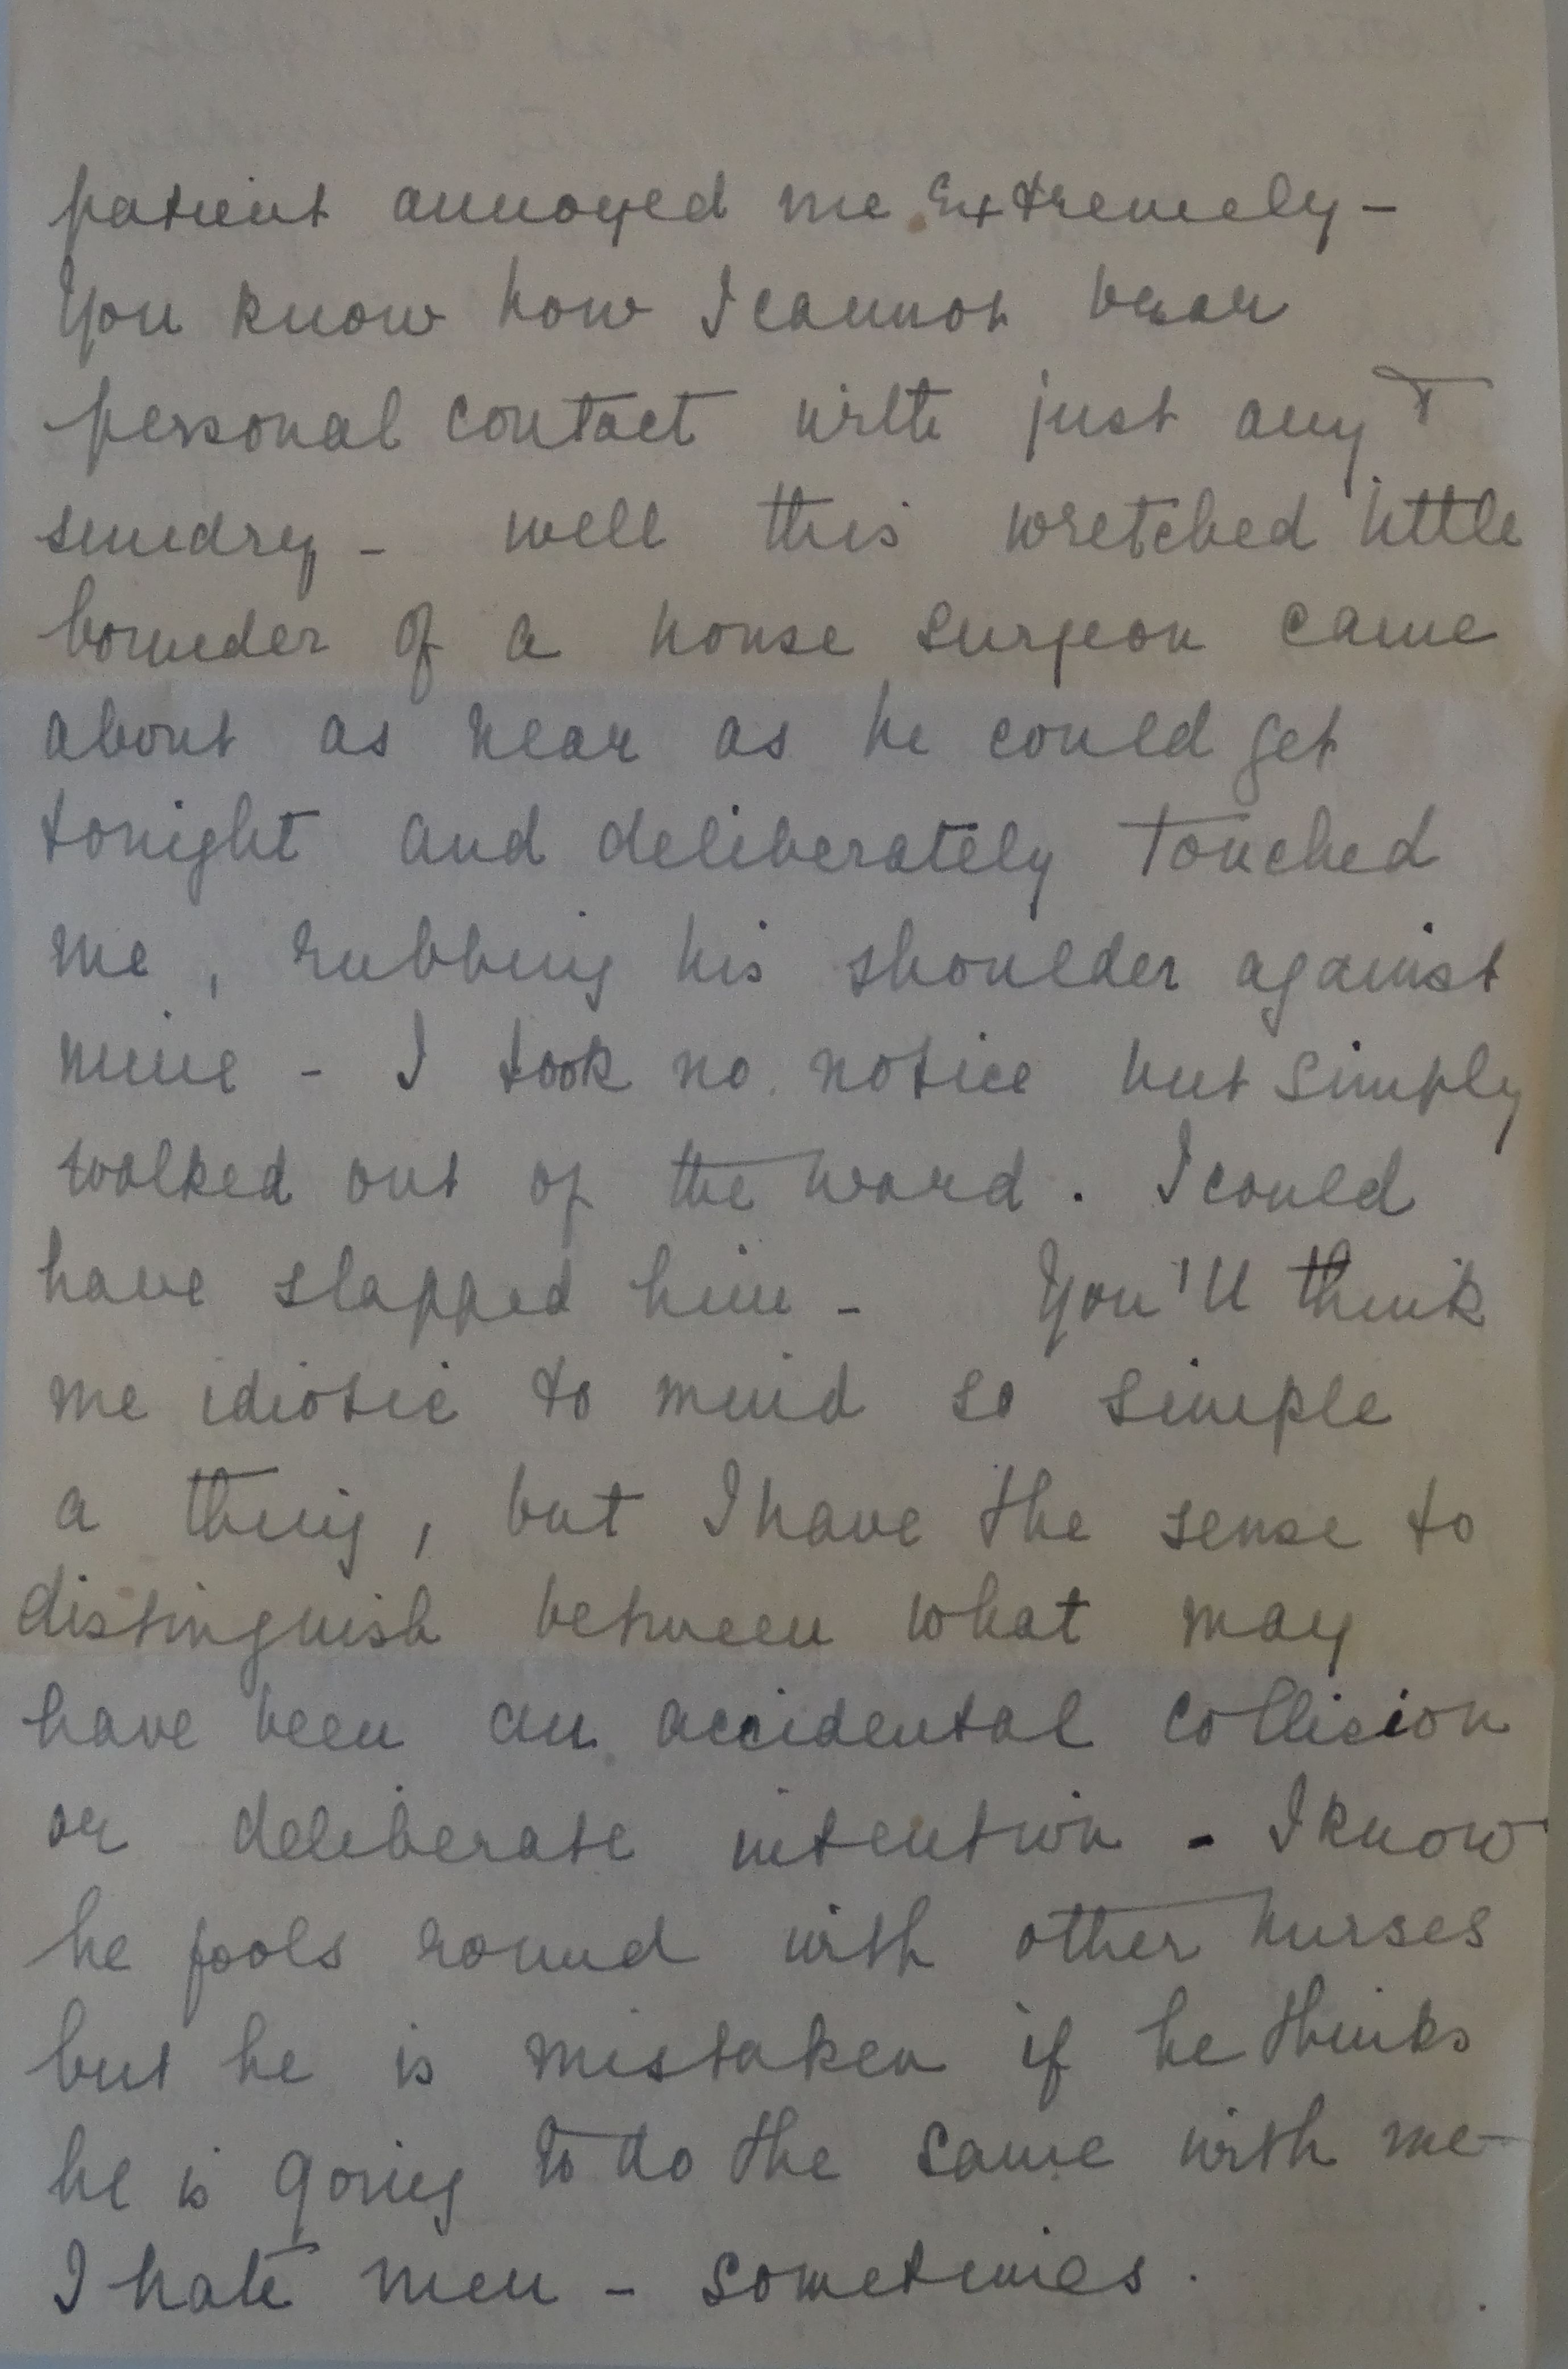 patient annoyed me Extremely -
You know how I cannot bear
personal contact with just any +
sundry - well this wretched little
bounder of a house surgeon came
about as near as he could get
tonight and deliberately touched
me, rubbing his shoulder against
mine - I took no notice but simply
walked out of the ward. I could
have slapped him - You'll think
me idiotic to mind so simple
a thing, but I have the sense to
distinguish between what may
have been an accidental collision
or deliberate intention - I know
he fools round with other nurses
but he is mistaken if he thinks
he is going to do the same with me -
I hate men - sometimes.